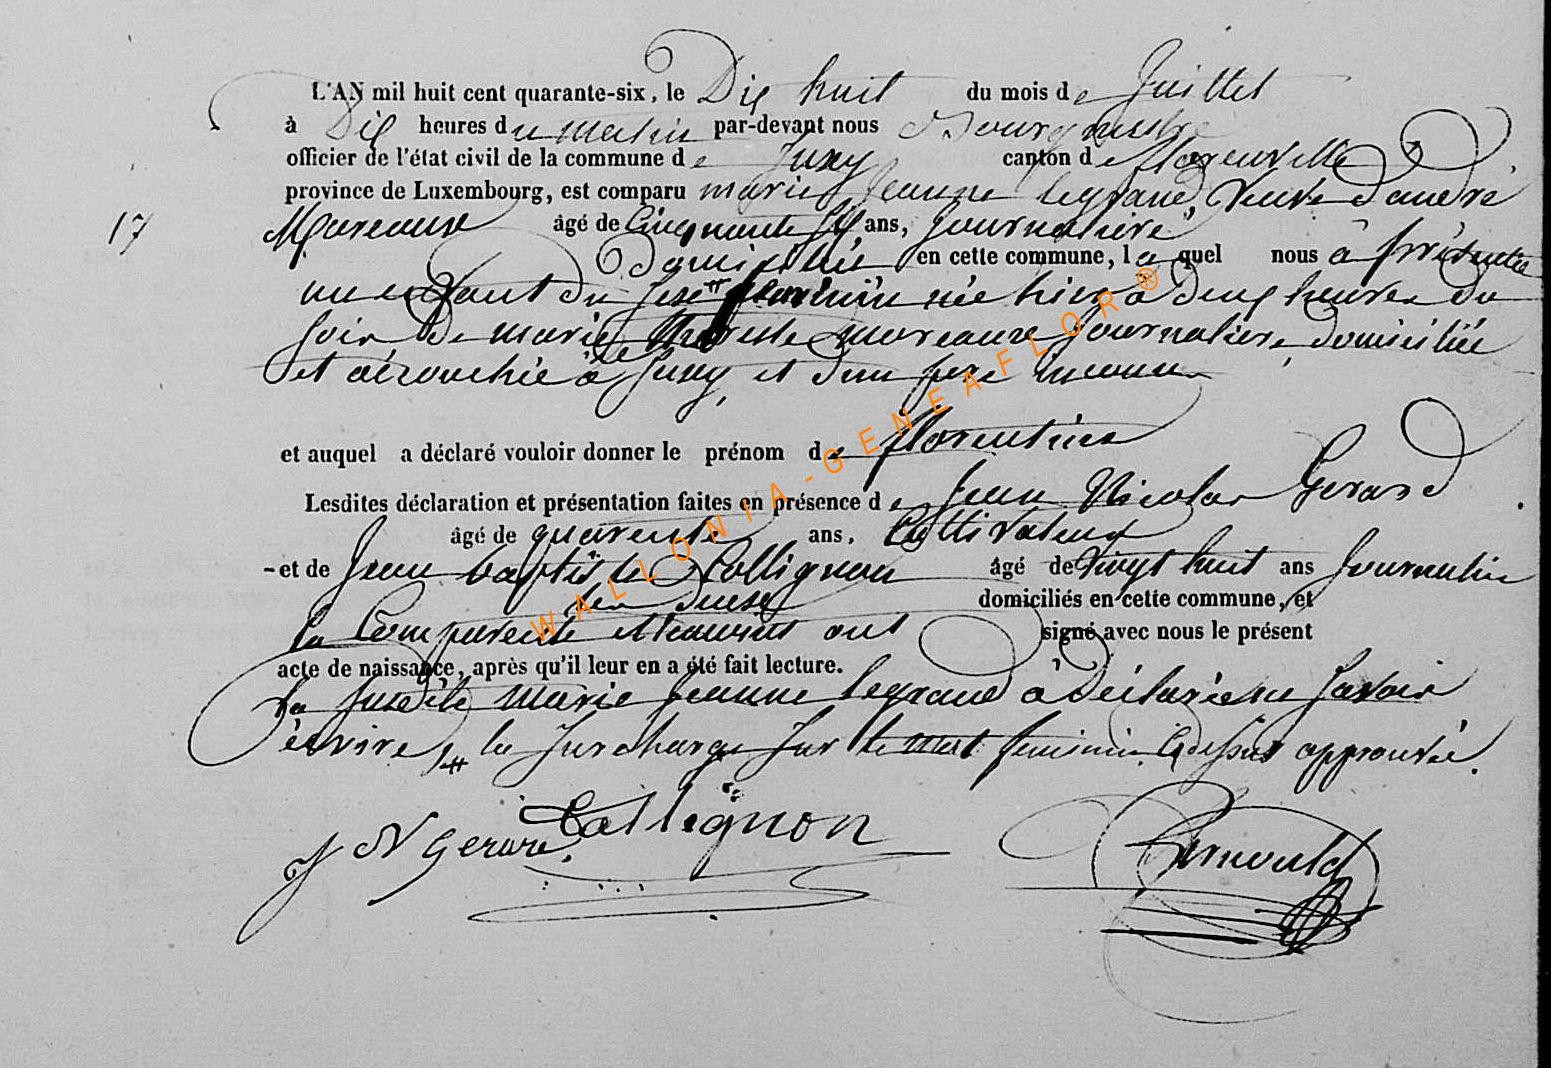 L'AN mil huit cent quarante-six, le Dix huit du mois de Juillet
à Dix heures du matin par-devant nous Bourgmestre
officier de l'état civil de la commune de Jusey canton de florenville
province de Luxembourg, est comparu marie Jeanne legrand, Veuve d'andré
17 Moreaux âgé de Cinquante six ans, Journaliere
Domiciliée en cette commune, laquel nous à présentée
un enfant du sexe # féminin née hier à deux heures du
soir de marie Therese moreaux Journaliere, domiciliée
et accouchée à Jusey, et d'un pere inconnu
et auquel a déclaré vouloir donner le prénom de florentine
Lesdites déclaration et présentation faites en présence de Jean Nicolas Gerard
âgé de quarente ans, Cultivateur
- et de Jean baptiste Collignon âgé de Vingt huit ans Journalier
domiciliés en cette commune, et
la Comparente et temoins ont signé avec nous le présent
acte de naissance, après qu'il leur en a été fait lecture.
la susdite marie Jeanne legrand à déclarée ne savoir
écrire, # la surcharge sur le mot feminin Ci dessus approuvée.
J N Gerard Collignon Arnould
WALLONIA-GENEAFLOR ®